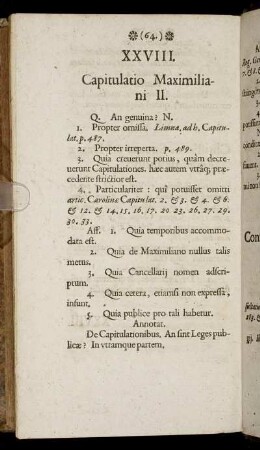 ❋(64.)❋
XXVIII.
Capitulatio Maximilia-
ni II.
Q. An genuina? N.
1. Propter omissa. Limnæ, ad h. Capitu-
lat. p. 487.
2. Propter irreperta. p. 489.
3. Quia creuerunt potius, quàm decre-
uerunt Capitulationes. hæc autem vtrâq; præ-
cedente strictior est.
4. Particulariter: quî potuisset omitti
artic. Carolinæ Capitulat. 2. & 3. & 4. & 6.
& 12. & 14. 15. 16. 17. 20 23. 26. 27. 29.
30. 33.
Aff. 1. Quia temporibus accommo-
data est.
2. Quia de Maximiliano nullus talis
metus.
3. Quia Cancellarij nomen adscri-
ptum.
4. Quia cetera, etiamsi non expressa,
insunt.
5. Quia publice pro tali habetur.
Annotat.
De Capitulationibus. An sint Leges pu-
blicæ? In vtramque partem,